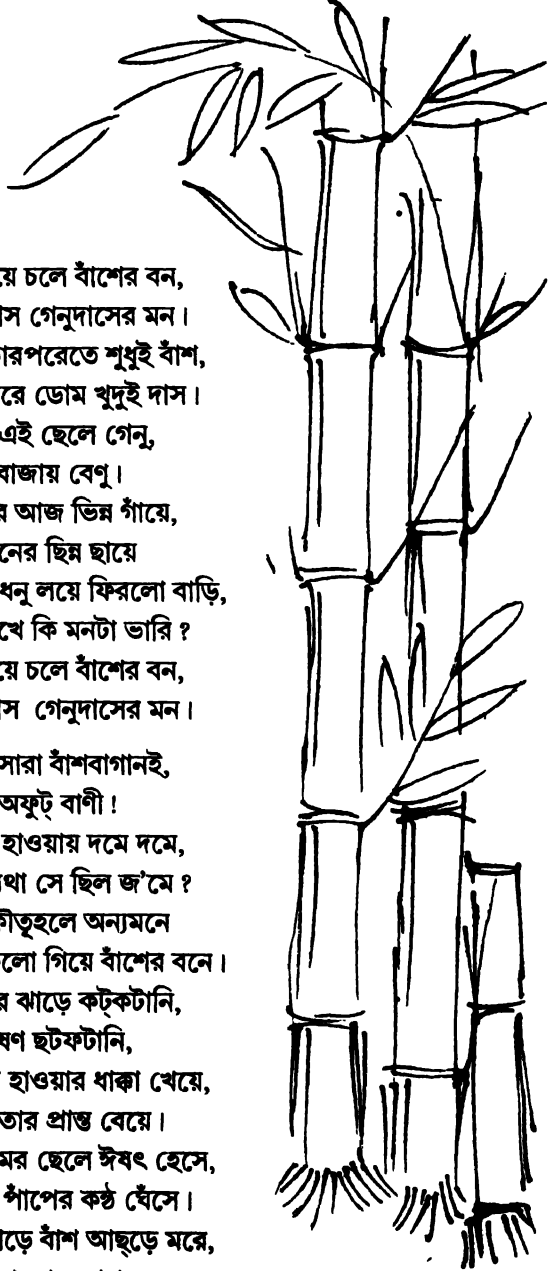 য়ে চলে বাঁশের বন,
াস গেনুদাসের মন।
তারপরেতে শুধুই বাঁশ,
রে ডোম খুদুই দাস।
এই ছেলে গেনু,
বাজায় বেণু।
র আজ ভিন্ন গাঁয়ে,
নের ছিন্ন ছায়ে
ধনু লয়ে ফিরলো বাড়ি,
খে কি মনটা ভারি ?
য়ে চলে বাঁশের বন,
াস গেনুদাসের মন।
সারা বাঁশবাগানই,
অফুট্ বাণী !
হাওয়ায় দমে দমে,
থা সে ছিল জ'মে ?
কৌতূহলে অন্যমনে
লো গিয়ে বাঁশের বনে।
র ঝাড়ে কট্‌কটানি,
ষণ ছটফটানি,
হাওয়ার ধাক্কা খেয়ে,
তার প্রান্ত বেয়ে।
মের ছেলে ঈষৎ হেসে,
পাঁপের কণ্ঠ ঘেঁসে।
াড়ে বাঁশ আছ্‌ড়ে মরে,